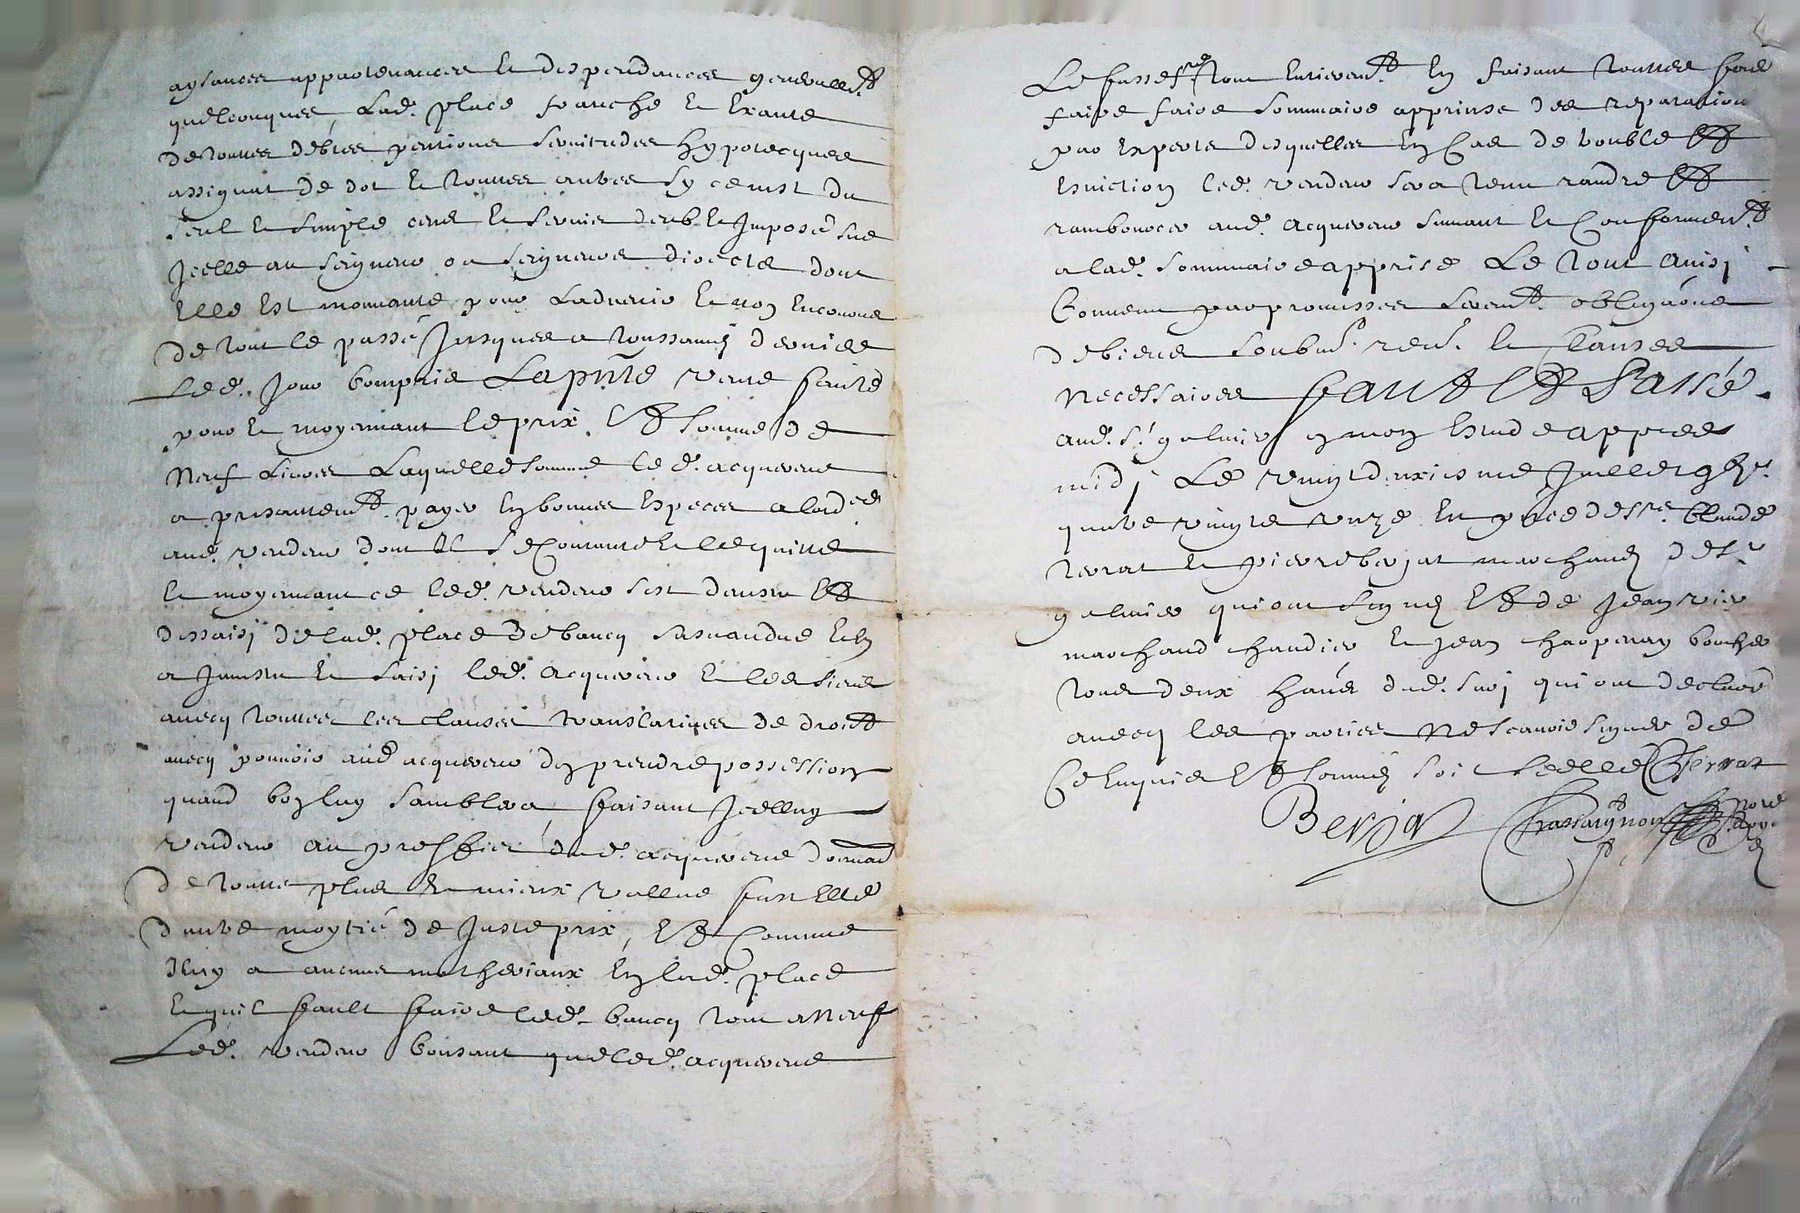 aysances appartenances et despendances generallemt
quelconques, Lad. place franche et Exante
de toutes debtes pentions servitudes hypotecques
assignat de dot et toutes autres sy ce n'est du
seul et simple cens et servis deub et Imposé sur
Icelle au seigneur ou seigneurs directe dont
Elle est mouvante pour Ladvenir et non Encorove
de tout le passé Jusques a toussainj dernier
Led. Jour comprie La pnte vente faite
pour et moyennant le prix Et somme de
Neuf Livres Laquelle somme led. acquereur
a presantemt. payer En bonnes Especes a
aud. vendeur dont Il se Contante Et le quitte
Et moyennant ce led. vendeur sest devestu Et
dessaisj de lad. place de bancq susvandue Et En
a Jnvestu Et saisj led. acquereur Et les siens
avecq touttes les clauses translatives de droict
avecq pouvoir aud acquereur d'en prendre possession
quand bon luy samblera, faisant Jcelluy
vendeur au proffict dud. acquereur
de toutte plus Et mieux vallue fust Elle
d'autre moytié de Juste prix, Et Comme
Il ny a aucuns matheriaux En lad. place
Et quil fault faire led. bancq tout a Neuf
Led. vendeur Consant que led. acquereur
Le fasse fre tout Entieremt. En faisant touttes fois
faire faire sommaire apprinse des reparations
par Experts desquelles En Cas de trouble Et
Eviction led. vendeur sera tenu randre Et
rambourcer aud. acquereur suivant Et Conformemt
a lad. sommaire apprise Le tout ainsj
Convenu par promisses sermt. obligaons
de biens soubm. ren. Et Clauses
Necessaires faict Et Passé
aud. St. galmier Estude appres
midj Le vingt deuxiesme Juillet
quatre vingts Unze En pnce de Claude
terrat Et pierre berjat marchand de St
galmier qui ont signé Et de Jean
marchand chandier Et Jean
tous deux dud. qui ont declaré
avecq les parties Ne scavoir signer de
Ce Enquis Et sommé Terrat
Berjat Chassaignon